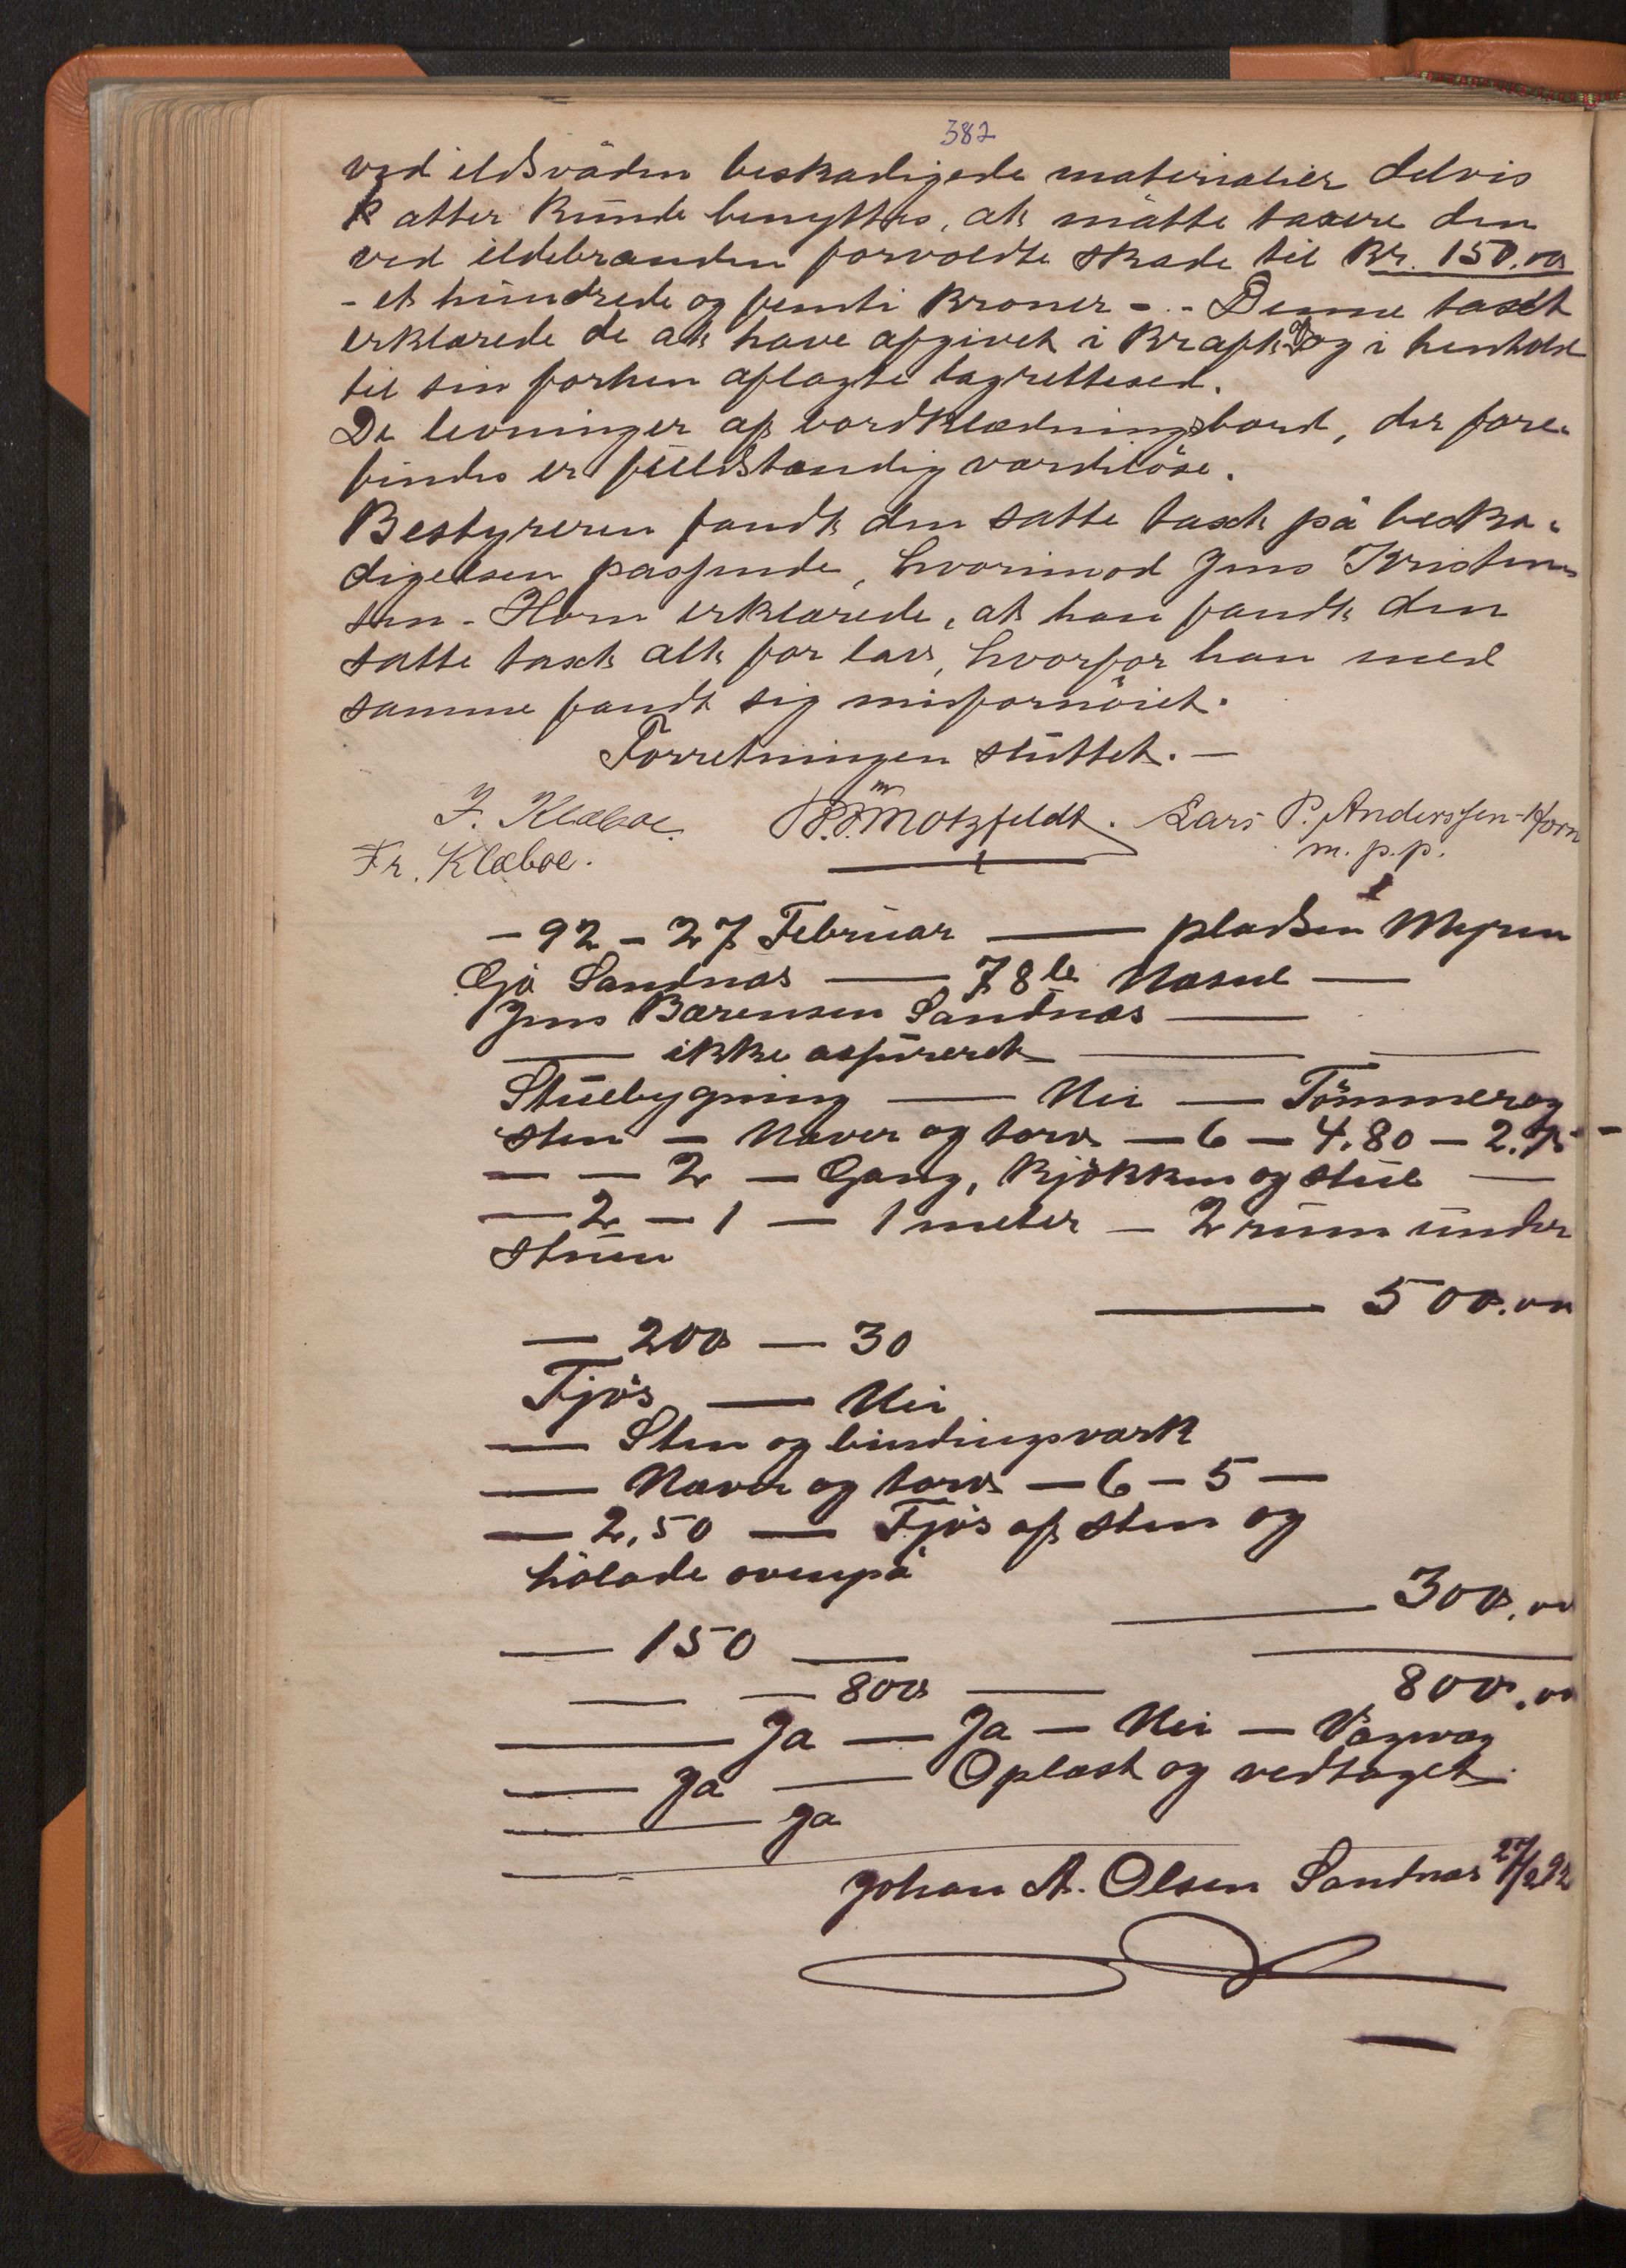 382
ved ildsvåden beskadigede materialier delvis
atter kunde benyttes, at måtte taxere den
ved ildebranden forvoldte skade til Kr. 150.00
- et hundrede og femti Kroner - - Denne taxt
erklærede de at have afgivet i Kraft og i henhold
til sin forhen aflagte lagrettesed.
De levninger af bordklædningsbord, der fore-
findes er fuldstændig værdiløse.
Bestyreren fandt den satte taxt på beska-
digelsen passende, hvorimod Jens Kristen-
sen - Horn erklærede, at han fandt den
satte taxt alt for lav, hvorfor han med
samme fandt sig misfornöiet.
Forretningen sluttet. —
J. Klæboe. P. Motzfeldt. Lars P. Anderssen-Horn
Fr. Klæboe. m. p. p.
- 92 - 27 Februar — pladsen Myren
Sandnæs — 78 Næsne —
Jens Bærensen Sandnæs —
— ikke assureret — —
Stuebygning — Nei — Tömmer og
sten — Næver og torv — 6 — 4.80 — 2.75 —
— — 2 — Gang, Kjökken og stue —
— 2 — 1 — 1 meter — 2 rum under
stuen
— 500.00
— 200 — 30
Fjös — Nei
— Sten og bindingsværk
— Næver og torv — 6 — 5 —
— 2,50 — Fjös af sten og
hölade ovenpå
— 300.00
— 150 —
— — 800 — 800.00
— Ja — Ja — Nei — Vågvåg
— Ja — Oplæst og vedtaget.
— Ja
—
Johan A. Olsen Sandnæs 27/2 92